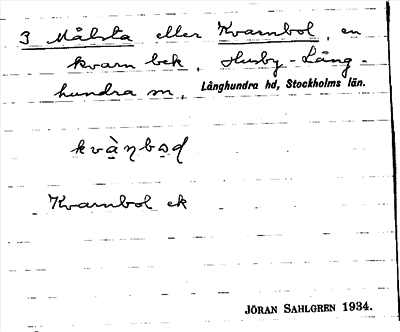 3 Målsta eller Kvarnbol, en
kvarn bek, Husby-Lång-
hundra sn, Långhundra hd, Stockholms län.
Kvarnbol ek
JÖRAN SAHLGREN 1934.